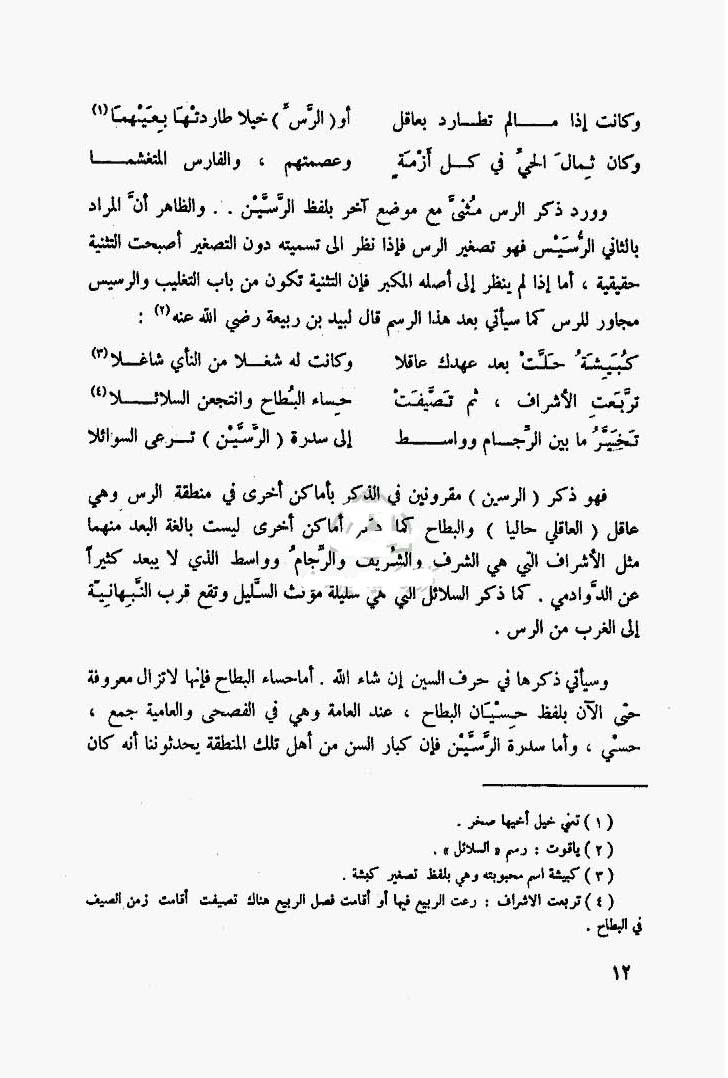 وكانت إذا مـــــالم تطـــارد بعاقل    أو ( الرَّسِّ ) خيلا طاردتْهَا بِعَيْنهمَا(١)
وكان ثِمالَ الحيِّ في كـــل أَزْمَةٍ    وعصمتهم ، والفارس المتغشمـــــا
وورد ذكر الرس مُثنىًّ مع موضع آخر بلفظ الرَّسَّيْن . . والظاهر أنَّ المراد
بالثاني الرُّسَيْس فهو تصغير الرس فإذا نظر الى تسميته دون التصغير أصبحت التثنية
حقيقية ، أما إذا لم ينظر إلى أصله المكبر فإن التثنية تكون من باب التغليب والرسيس
مجاور للرس كما سيأتي بعد هذا الرسم قال لبيد بن ربيعة رضي الله عنه(٢) :
كُبَيشَةُ حَلَّتْ بعد عهدك عاقلا    وكانت له شغـــلا من النأي شاغـــلا(٣)
تربَّعَتِ الأشراف ، ثم تَصَيَّفَتْ    حِساء البُطاح وانتجعن السلائـــــلا(٤)
تَخَيَّرُ ما بين الرِّجـــام وواســـــط    إلى سدرة ( الرَّسَّيْن ) تـــرعى السوائلا
فهو ذكر ( الرسين ) مقرونين في الذكر بأماكن أخرى في منطقة الرس وهي
عاقل ( العاقلي حاليا ) والبطاح كما ذكر أماكن أخرى ليست بالغة البعد منهما
مثل الأشراف التي هي الشرف والشُّريف والرِّجامُ وواسط الذي لا يبعد كثيراً
عن الدَّوادمي . كما ذكر السلائل التي هي سليلة مؤنث السَّليل وتقع قرب النَّبهانيّة
إلى الغرب من الرس .
وسيأتي ذكرها في حرف السين إن شاء الله . أماحساء البطاح فإنها لاتزال معروفة
حتى الآن بلفظ حِسْيَان البطاح ، عند العامة وهي في الفصحى والعامية جمع ،
حسْي ، وأما سدرة الرَّسَّيْن فإن كبار السن من أهل تلك المنطقة يحدثوننا أنه كان
( ١ ) تعني خيل أخيها صخر .
( ٢ ) ياقوت : رسم « السلائل » .
( ٣ ) كبيشة اسم محبوبته وهي بلفظ تصغير كبشة .
( ٤ ) تربعت الاشراف : رعت الربيع فيها أو أقامت فصل الربيع هناك تصيفت أقامت زمن الصيف
في البطاح .
١٢